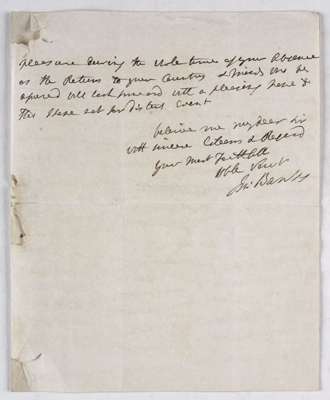 pleasure during the whole time of your Absence
as the Return to your Country & Friends
will look forward with a pleasing hope
this I hope not far distant Event
believe me my dear Sir
with sincere Esteem & Regard
Your most Faithfull
Hble Servt
Jos: Banks